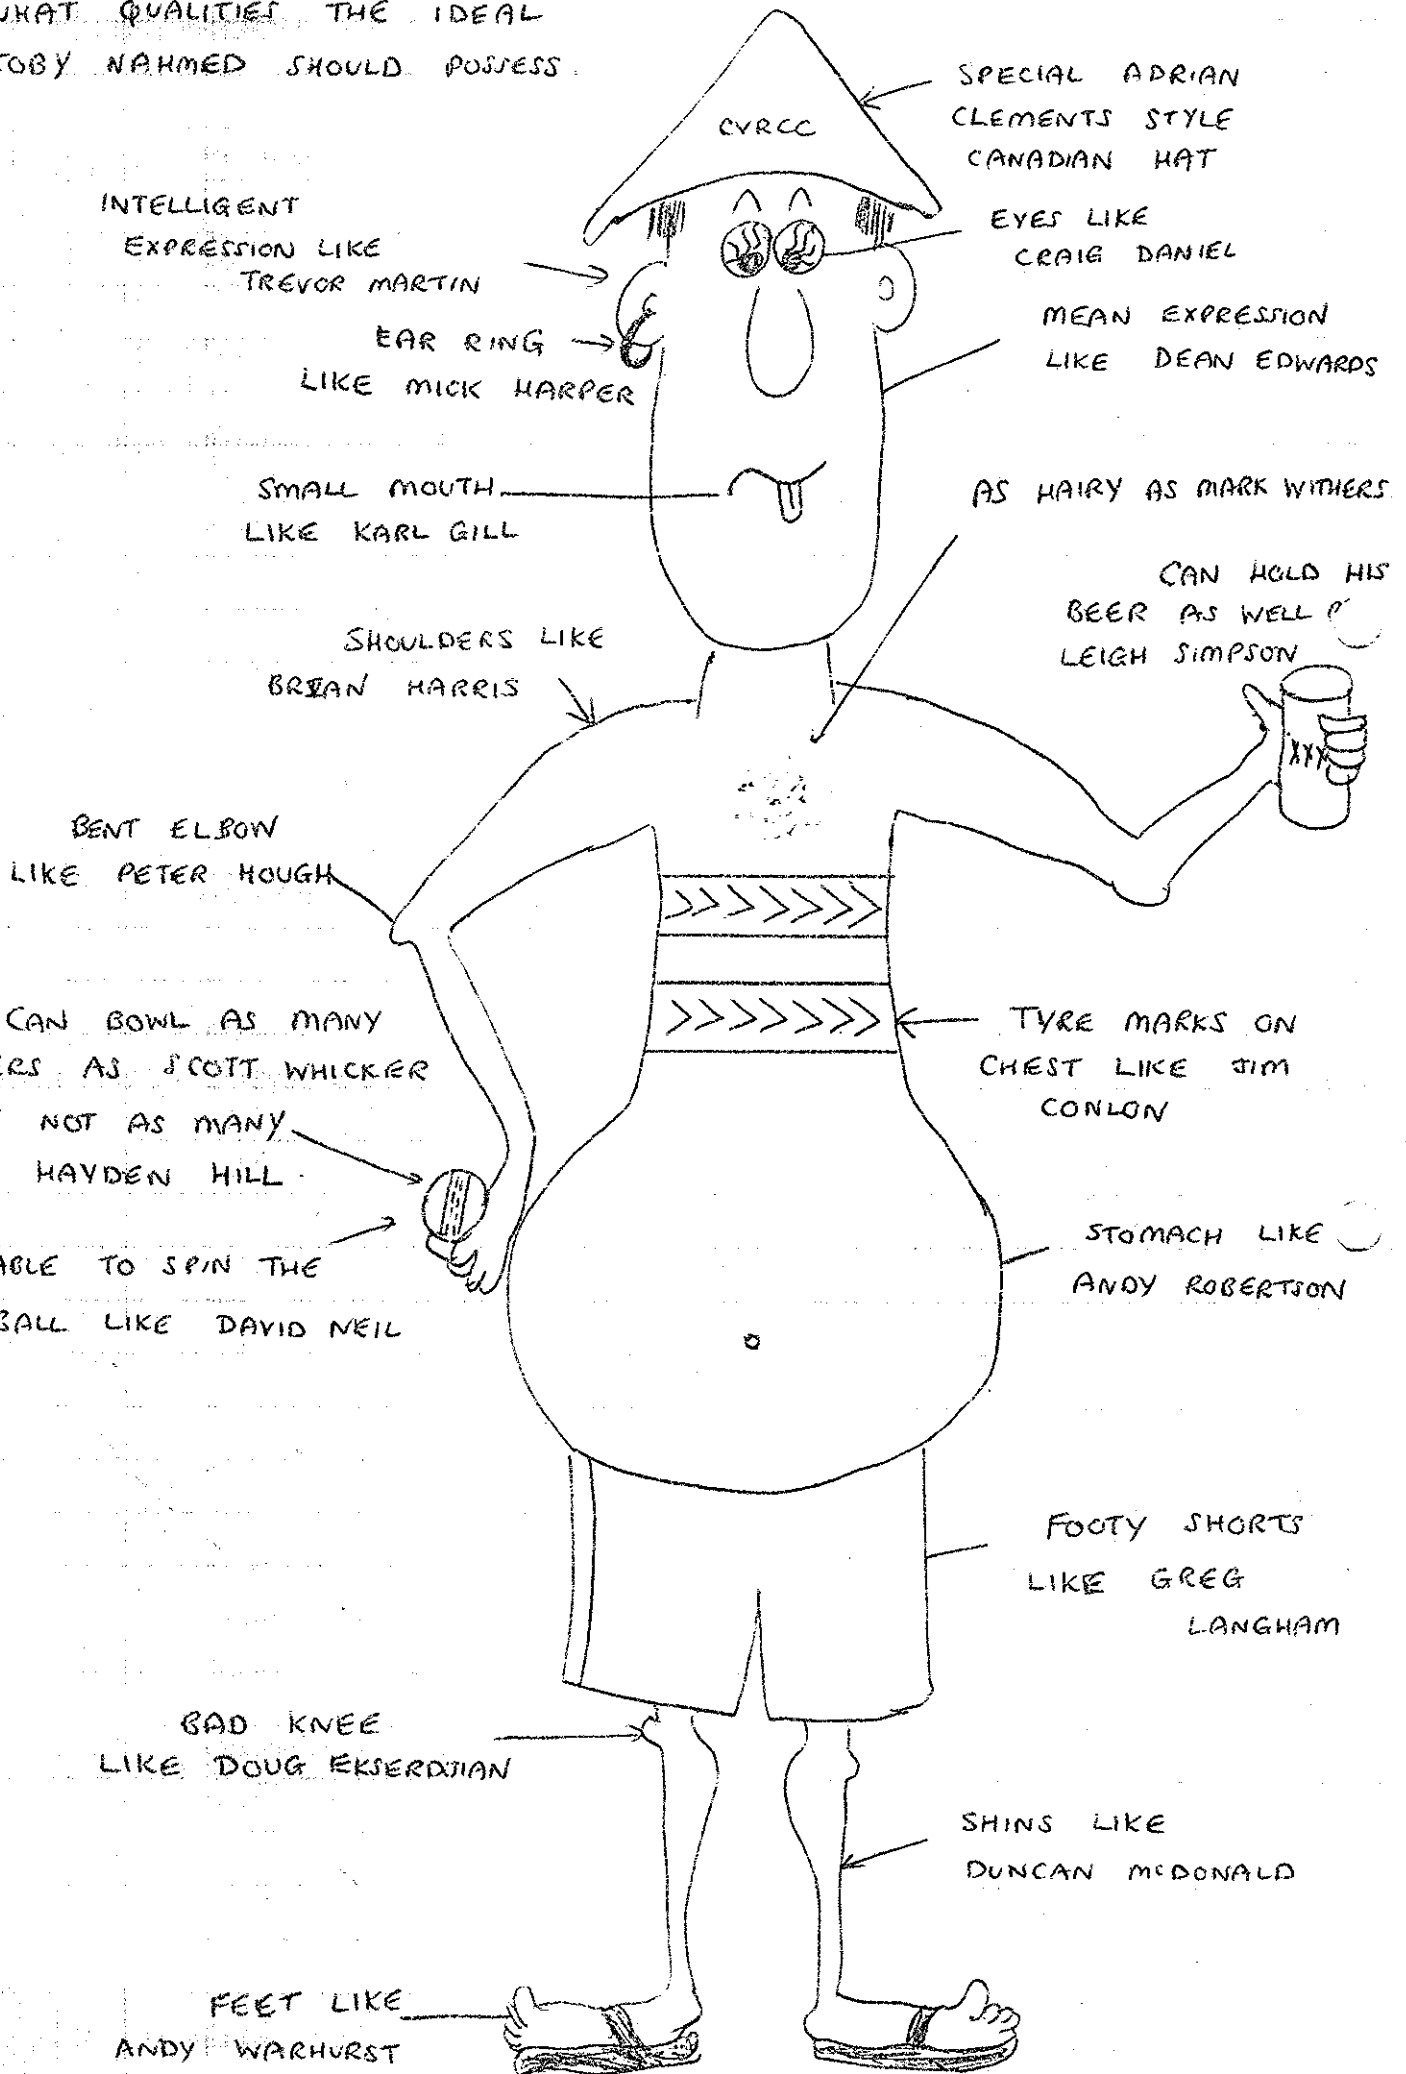 WHAT QUALITIES THE IDEAL
TOBY NAHMED SHOULD POSSESS
SPECIAL ADRIAN
CLEMENTS STYLE
CANADIAN HAT
CVRCC
INTELLIGENT
EXPRESSION LIKE
TREVOR MARTIN
EYES LIKE
CRAIG DANIEL
EAR RING
LIKE MICK HARPER
MEAN EXPRESSION
LIKE DEAN EDWARDS
SMALL MOUTH
LIKE KARL GILL
AS HAIRY AS MARK WITHERS
CAN HOLD HIS
BEER AS WELL
LEIGH SIMPSON
XXX
SHOULDERS LIKE
BRIAN HARRIS
BENT ELBOW
LIKE PETER HOUGH
CAN BOWL AS MANY
ERS AS SCOTT WHICKER
NOT AS MANY
HAYDEN HILL
ABLE TO SPIN THE
BALL LIKE DAVID NEIL
TYRE MARKS ON
CHEST LIKE JIM
CONLON
STOMACH LIKE
ANDY ROBERTSON
FOOTY SHORTS
LIKE GREG
LANGHAM
BAD KNEE
LIKE DOUG EKSERDJIAN
SHINS LIKE
DUNCAN McDONALD
FEET LIKE
ANDY WARHURST